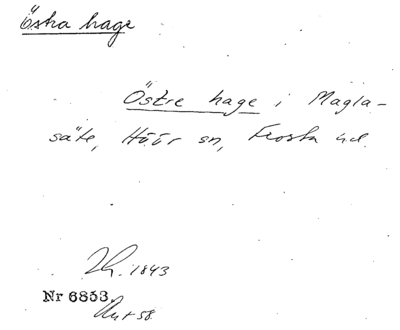 Östra hage
Östre hage i Magla-
säte, Höör sn, Frosta hd.
1843
Nr 6853.